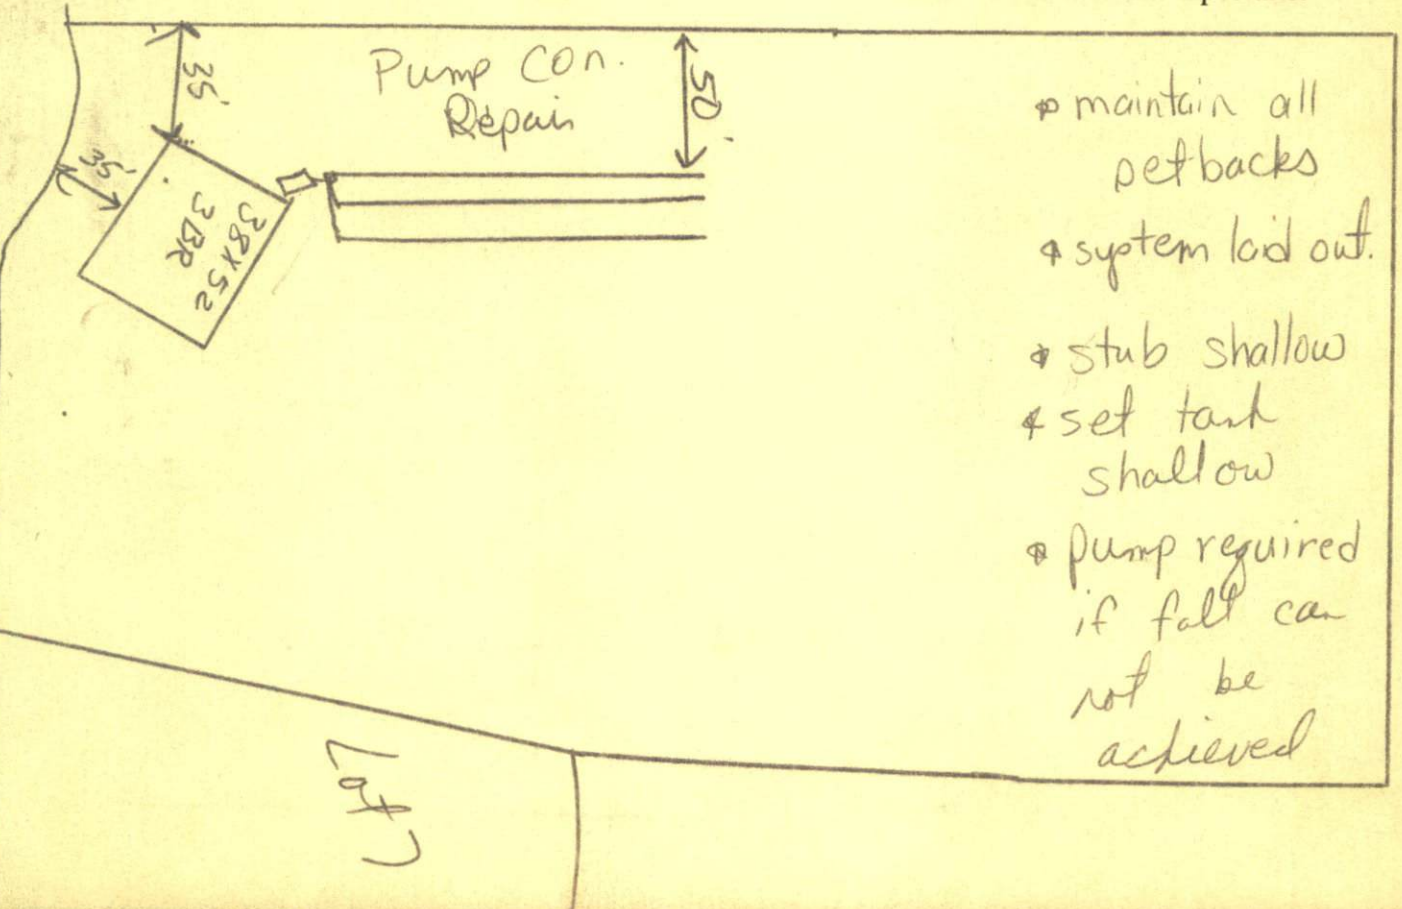 35'
Pump Con.
Repair
50'
35'
38X52
3BR
* maintain all
setbacks
* system laid out.
* stub shallow
* set tank
shallow
* pump required
if fall can
not be
achieved
Lot